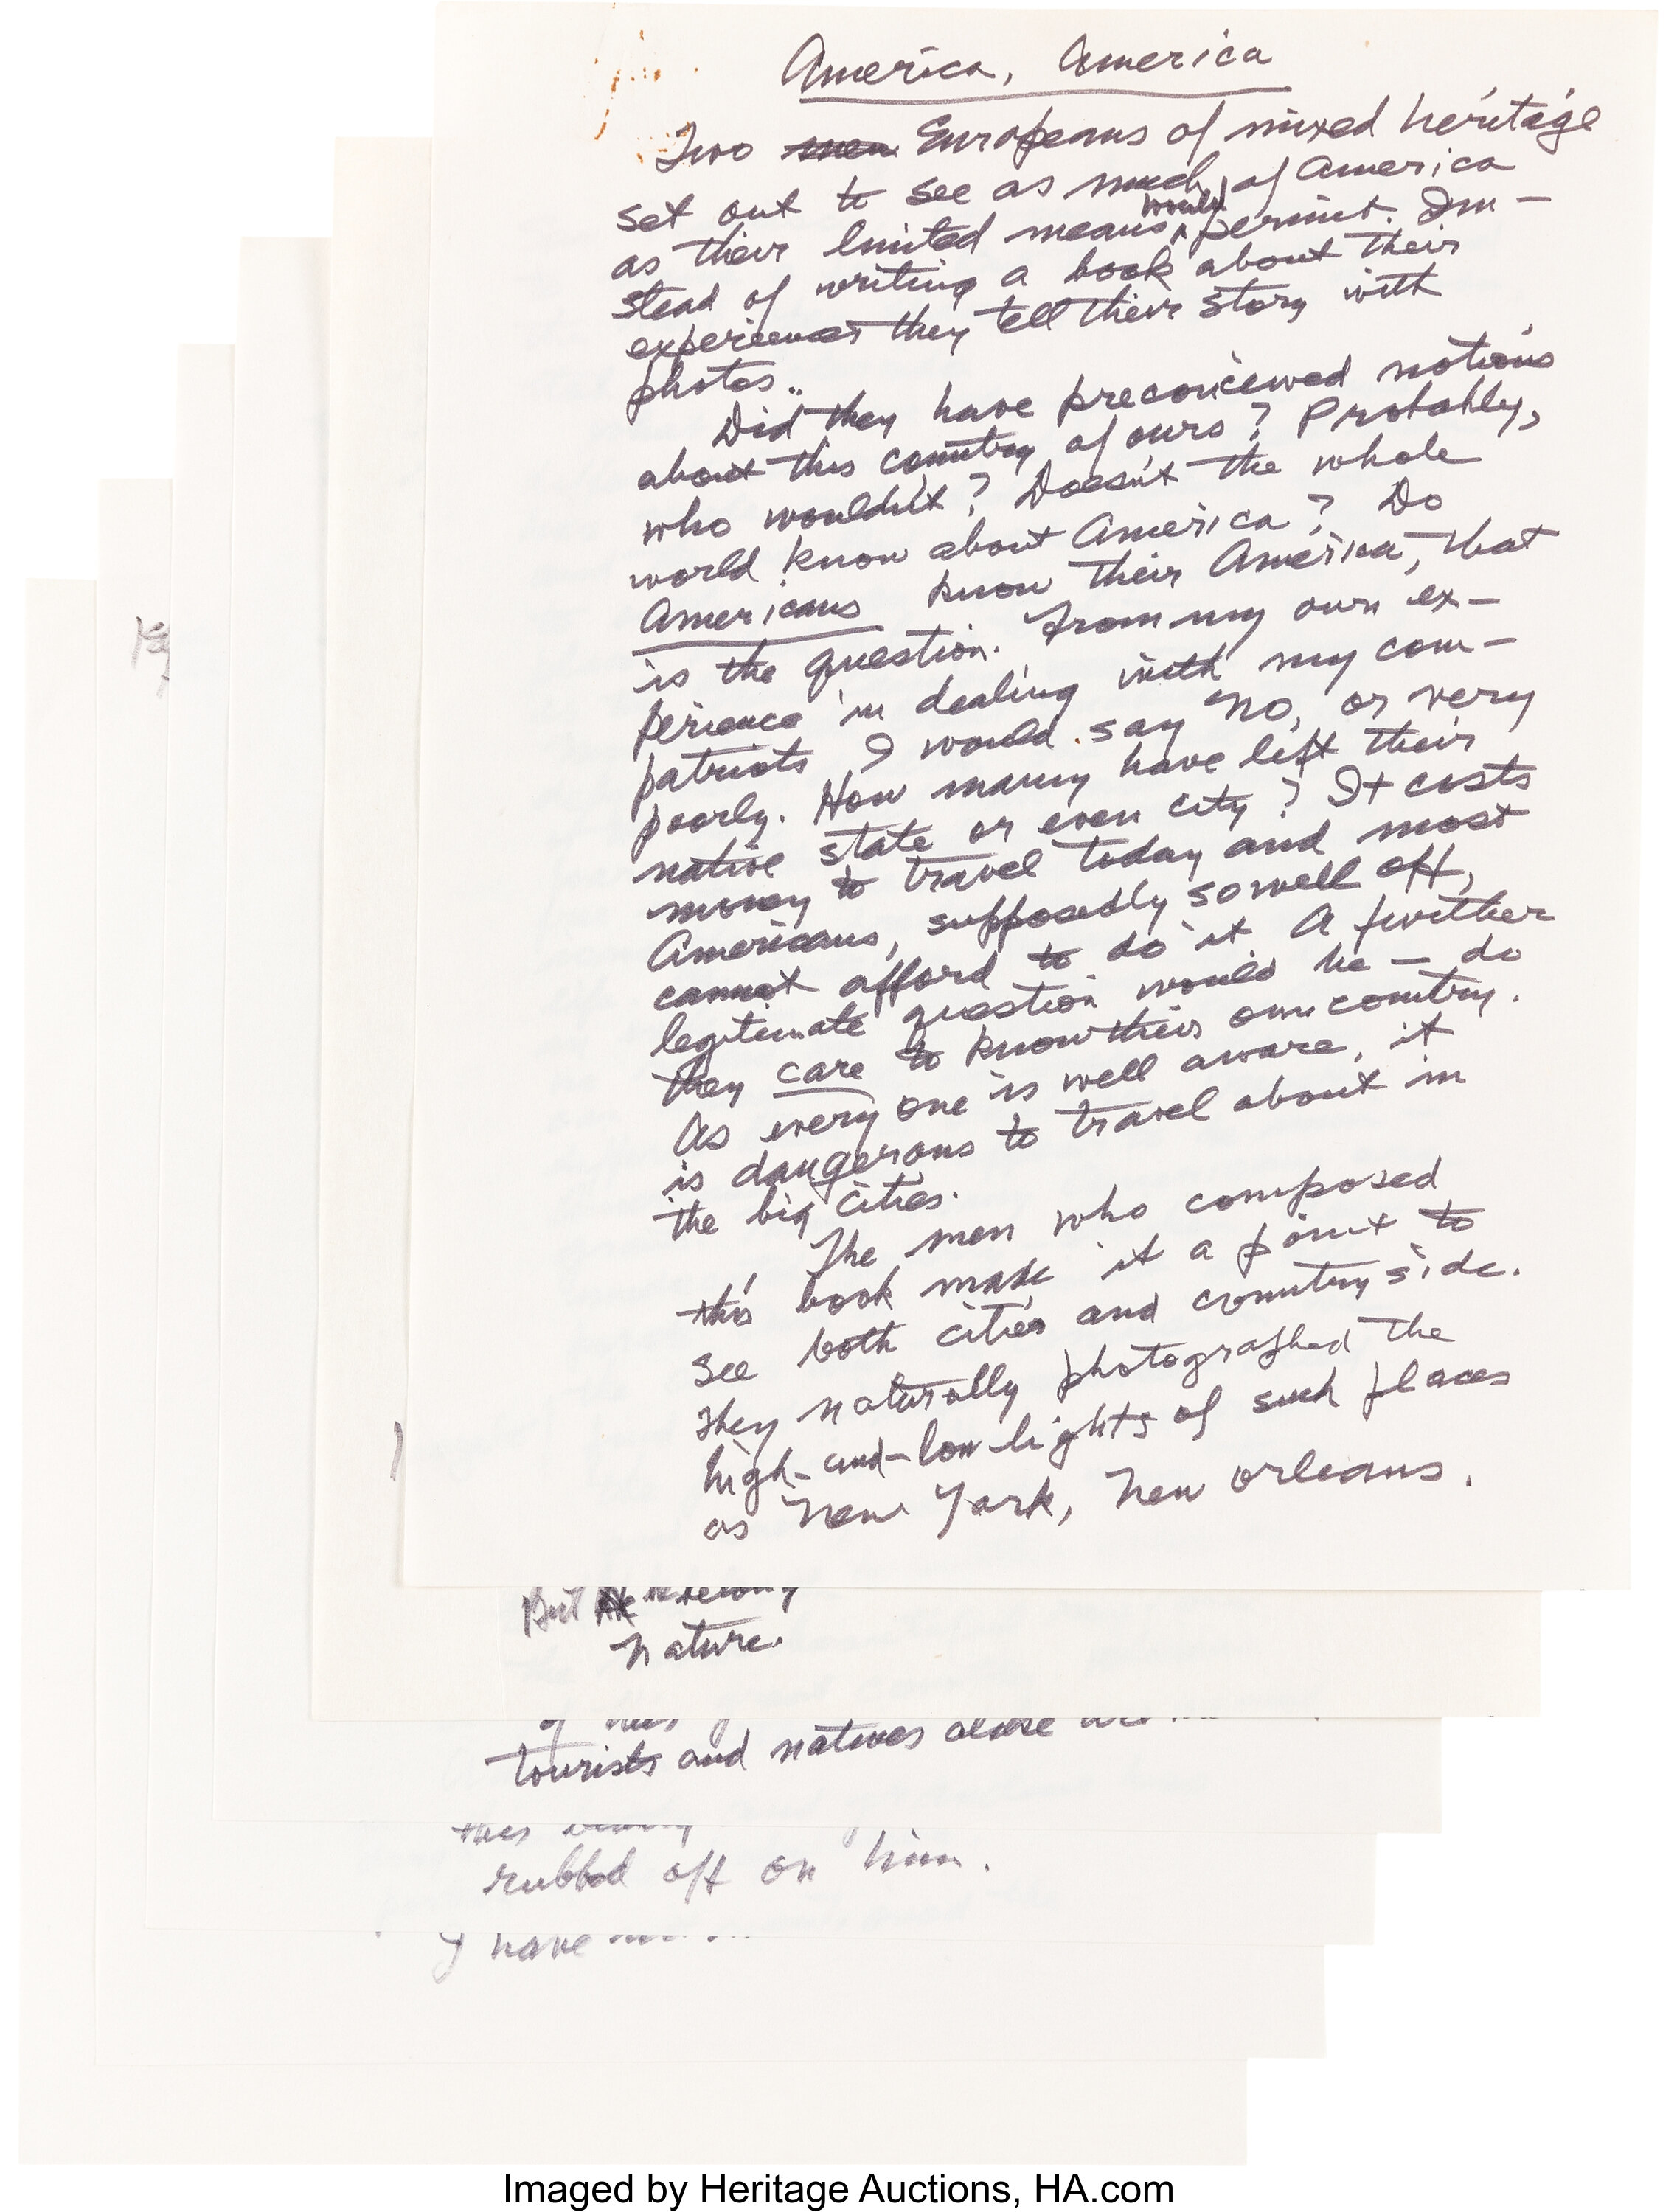 America, America
Two men Europeans of mixed heritage
set out to see as much of America
as their limited means would permit. In-
stead of writing a book about their
experiences they tell their story with
photos..
Did they have preconceived notions
about this country of ours? Probably,
who wouldn't? Doesn't the whole
world know about America? Do
Americans know their America, that
is the question. From my own ex-
perience in dealing with my com-
patriots I would say No, or very
poorly. How many have left their
native state or even city? It costs
money to travel today and most
Americans, supposedly so well off,
cannot afford to do it. A further
legitimate question would be — do
they care to know their own country.
As every one is well aware, it
is dangerous to travel about in
the big cities.
The men who composed
this book make it a point to
see both cities and countryside.
They naturally photographed the
high-and-low lights of such places
as New York, New Orleans.
But
Nature.
of
tourists and natives alike are
this
rubbed off on him.
I have
Imaged by Heritage Auctions, HA.com